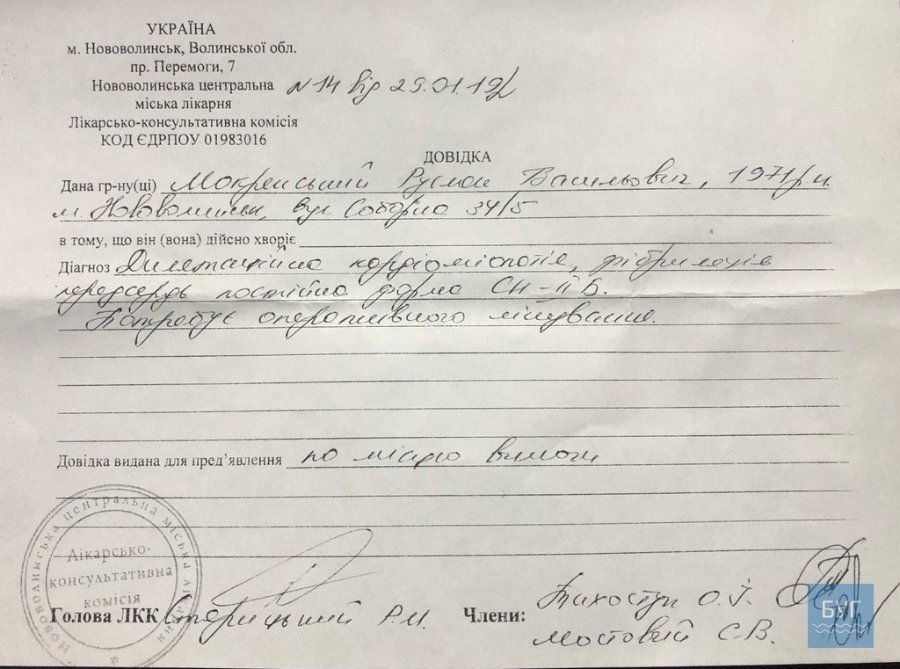 УКРАЇНА
м. Нововолинськ, Волинської обл.
пр. Перемоги, 7
Нововолинська центральна
міська лікарня
Лікарсько-консультативна комісія
КОД ЄДРПОУ 01983016
N 14 від 29.01.19
ДОВІДКА
Дана гр-ну(ці) Мокренський Руслан Васильович, 1971 р.н.
м. Нововолинськ, вул Соборна 34/5
в тому, що він (вона) дійсно хворіє
Діагноз Дилятаційна кардіоміопатія, фібриляція
передсердь постійна форма СН-ІІБ.
Потребує оперативного лікування.
Довідка видана для пред’явлення по місцю вимоги
Нововолинська центральна міська лікарня
Лікарсько-
консультативна
комісія
Голова ЛКК Старицький Р.М. Члени: Тихоступ О.І.
Мостовий С.В.
БУГ